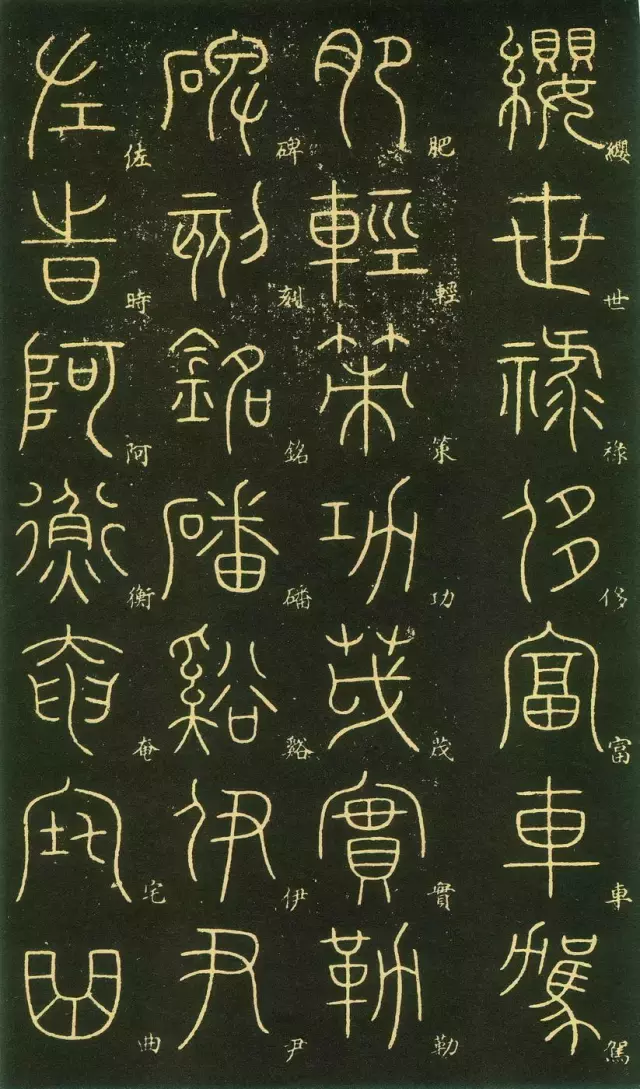 纓世祿侈富車駕
肥輕策功茂實勒
碑刻銘磻谿伊尹
佐時阿衡奄宅曲